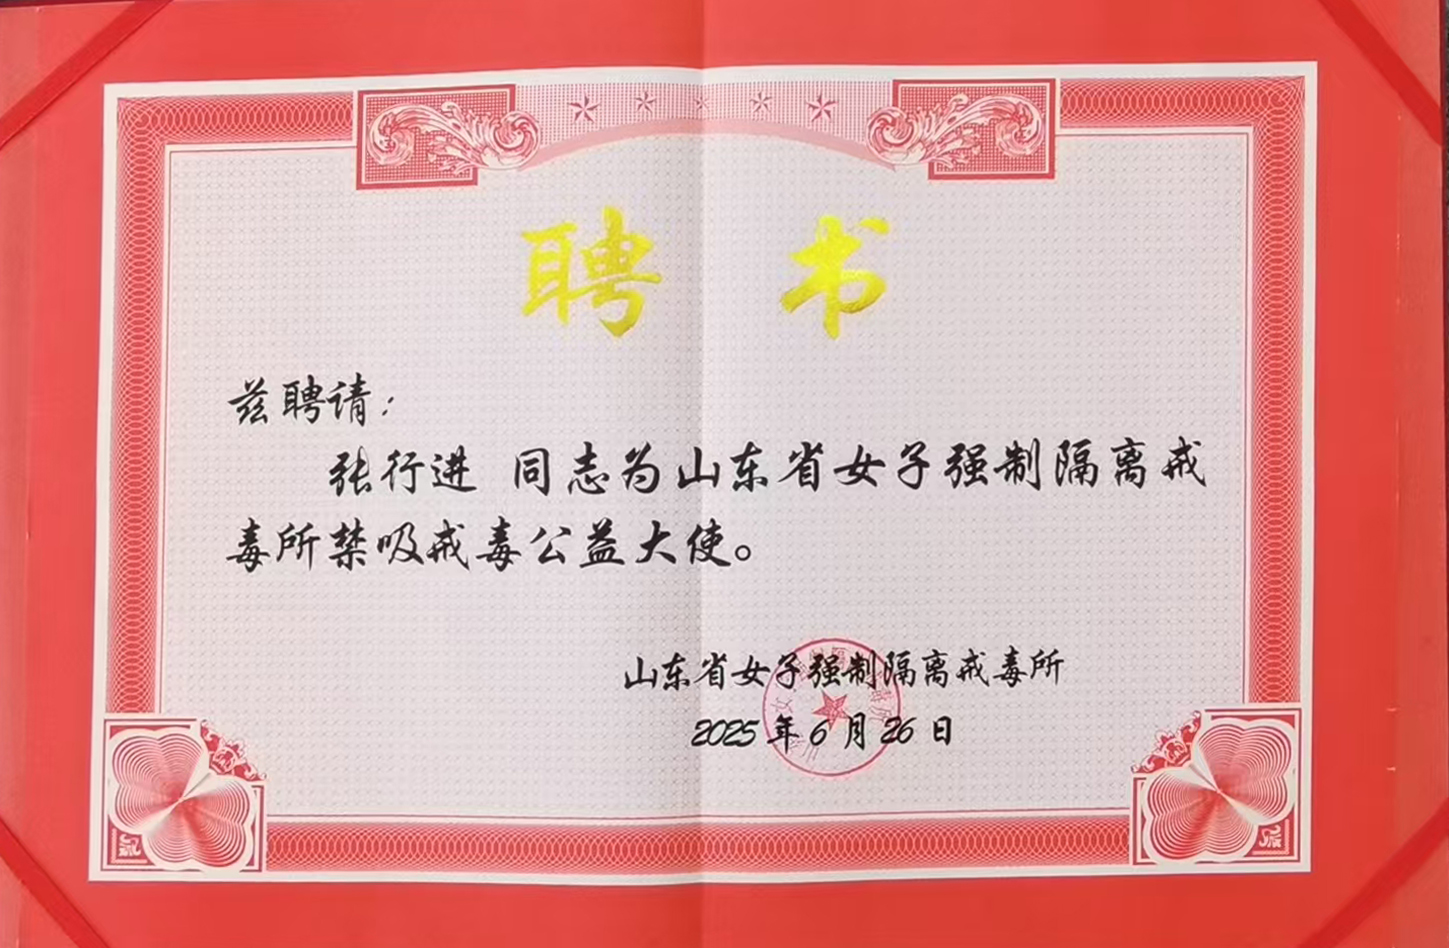 聘 书
兹聘请：
张行进 同志为山东省女子强制隔离戒
毒所禁吸戒毒公益大使。
山东省女子强制隔离戒毒所
2025年6月26日